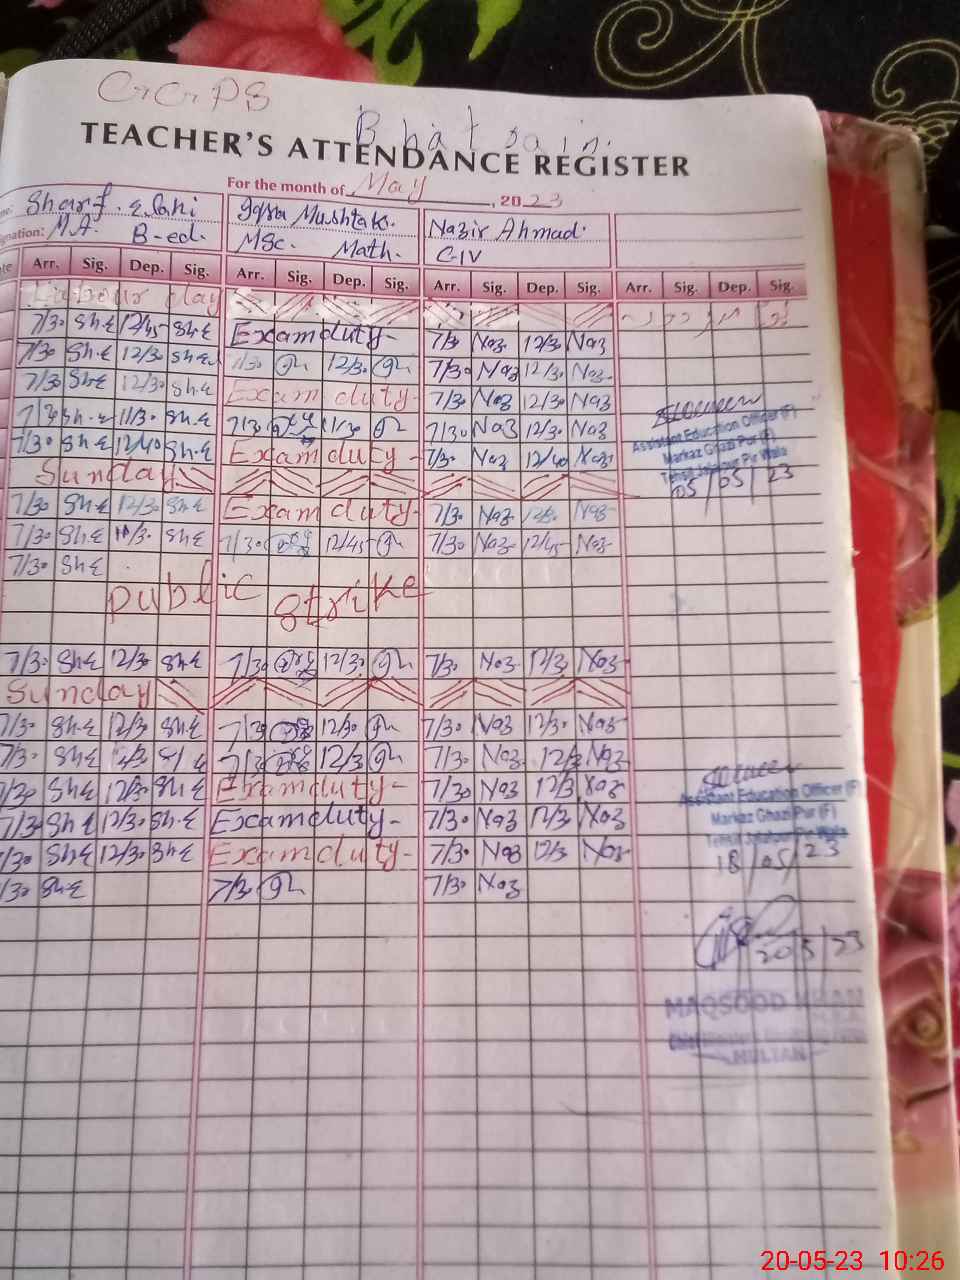 GGPS
Bhatsain.
TEACHER'S ATTENDANCE REGISTER
For the month of May, 2023
Sharf. Elahi Iqra Mushtak. Nazir Ahmad.
gnation: M.A. B-ed. MSc. Math. C-IV
te Arr. Sig. Dep. Sig. Arr. Sig. Dep. Sig. Arr. Sig. Dep. Sig. Arr. Sig. Dep. Sig.
Labour day
7/30 Sh.E 12/45 Sh.E Exam duty- 7/30 Naz 12/30 Naz
7/30 Sh.E 12/30 Sh.E 7/30 12/30 7/30 Naz 12/30 Naz
7/30 Sh.E 12/30 Sh.E Exam duty- 7/30 Naz 12/30 Naz
7/30 Sh.E 11/30 Sh.E 7/30 11/30 7/30 Naz 12/30 Naz
7/30 Sh.E 12/40 Sh.E Exam duty- 7/30 Naz 12/40 Naz
Assistant Education Officer (F)
Markaz Ghazi Pur (F)
Tehsil Jalalpur Pir Wala
05/05/23
Sunday
7/30 Sh.E 12/30 Sh.E Exam duty- 7/30 Naz 12/30 Naz
7/30 Sh.E Sh.E 7/30 12/45 7/30 Naz 12/45 Naz
7/30 Sh.E
Public Strike
7/30 Sh.E 12/30 Sh.E 7/30 12/30 7/30 Naz 12/30 Naz
Sunday
7/30 Sh.E 12/30 Sh.E 7/30 12/30 7/30 Naz 12/30 Naz
7/30 Sh.E 12/30 Sh.E 7/30 12/30 7/30 Naz 12/30 Naz
7/30 Sh.E 12/30 Sh.E Exam duty- 7/30 Naz 12/30 Naz
7/30 Sh.E 12/30 Sh.E Exam duty- 7/30 Naz 12/30 Naz
7/30 Sh.E 12/30 Sh.E Exam duty- 7/30 Naz 12/30 Naz
Assistant Education Officer (F)
Markaz Ghazi Pur (F)
Tehsil Jalalpur Pir Wala
18/05/23
7/30 Sh.E 7/30 7/30 Naz
20/5/23
MAQSOOD KHAN
MULTAN
20-05-23 10:26